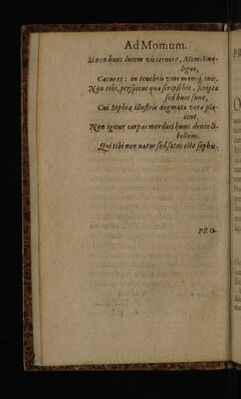 Ad Momum.
Si non hunc lutem vis cernere, Mome ma-
ligne,
Cæcus es: in tenebris viue manéq, tuis.
Non tibi, perspicuè quæ scripsi hîc, scripta
sed hucc sunt,
Cui Sophiæ illustris dogmata vera pla-
cent.
Non igitur carpas mordaci hunc dente li-
bellum:
Qui tibi non natus sed satus esto sophis.
PRO-